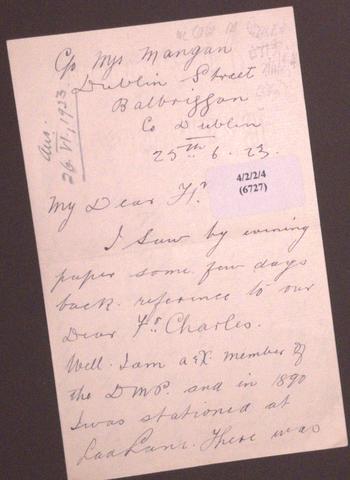 C/o Mrs Mangan
Dublin Street
Balbriggan
Co Dublin
25th 6. 23.
Ans.
26. VI. 1923
4/2/2/4
(6727)
My Dear Fr
I saw by evening
paper some few days
back. reference to our
Dear Fr Charles.
Well. I am a EX. member of
the D.M.P. and in 1890
I was stationed at
There was